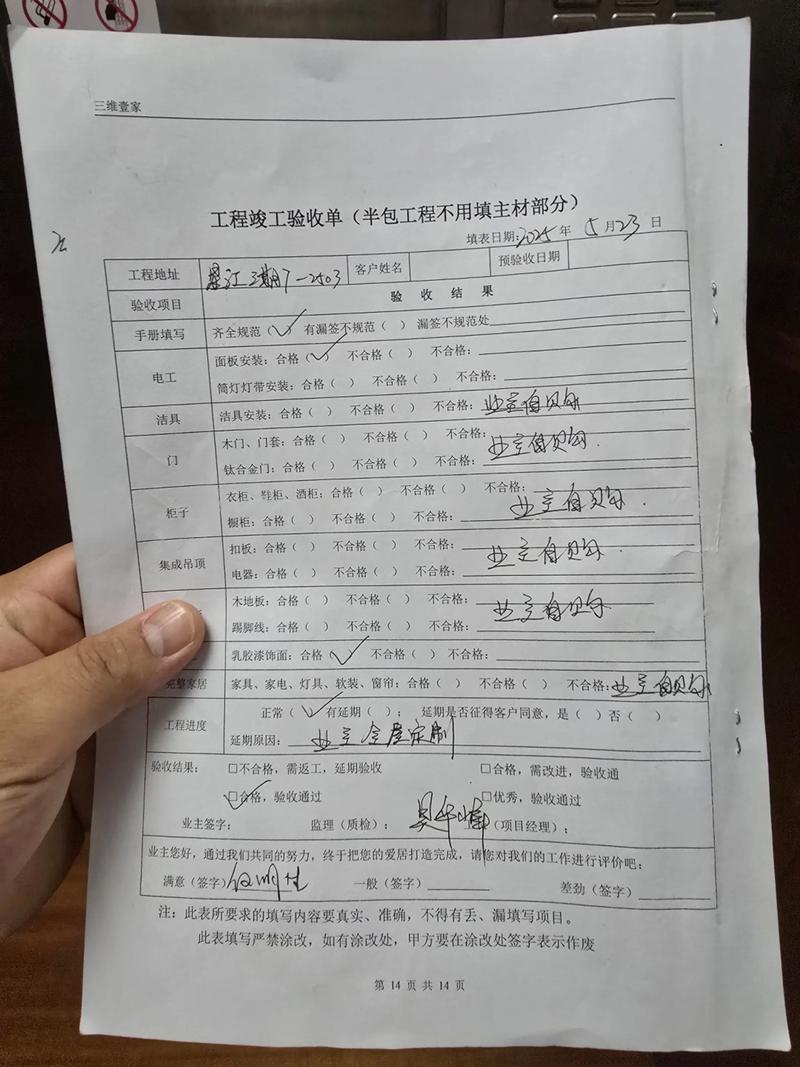 三维壹家
工程竣工验收单（半包工程不用填主材部分）
填表日期:2025年 5月23日
工程地址 江三期7-2503 客户姓名 预验收日期
验收项目 验 收 结 果
手册填写 齐全规范（✓） 有漏签不规范（ ） 漏签不规范处
电工 面板安装：合格（✓） 不合格（ ） 不合格：
筒灯灯带安装：合格（ ） 不合格（ ） 不合格：
洁具 洁具安装：合格（ ） 不合格（ ） 不合格：业主自购
门 木门、门套：合格（ ） 不合格（ ） 不合格：业主自购.
钛合金门：合格（ ） 不合格（ ） 不合格：
柜子 衣柜、鞋柜、酒柜：合格（ ） 不合格（ ） 不合格：业主自购.
橱柜：合格（ ） 不合格（ ） 不合格：
集成吊顶 扣板：合格（ ） 不合格（ ） 不合格：业主自购.
电器：合格（ ） 不合格（ ） 不合格：
木地板：合格（ ） 不合格（ ） 不合格：业主自购
踢脚线：合格（ ） 不合格（ ） 不合格：
乳胶漆饰面：合格 ✓ 不合格（ ） 不合格：
完整家居 家具、家电、灯具、软装、窗帘：合格（ ） 不合格（ ） 不合格：业主自购
工程进度 正常（✓） 有延期（ ）； 延期是否征得客户同意，是（ ）否（ ）
延期原因： 业主全屋定制
验收结果： □不合格，需返工，延期验收 □合格，需改进，验收通
☑合格，验收通过 □优秀，验收通过
业主签字： 监理（质检）： （项目经理）：
业主您好，通过我们共同的努力，终于把您的爱居打造完成，请您对我们的工作进行评价吧：
满意（签字） 一般（签字） 差劲（签字）
注：此表所要求的填写内容要真实、准确，不得有丢、漏填写项目。
此表填写严禁涂改，如有涂改处，甲方要在涂改处签字表示作废
第 14 页 共 14 页